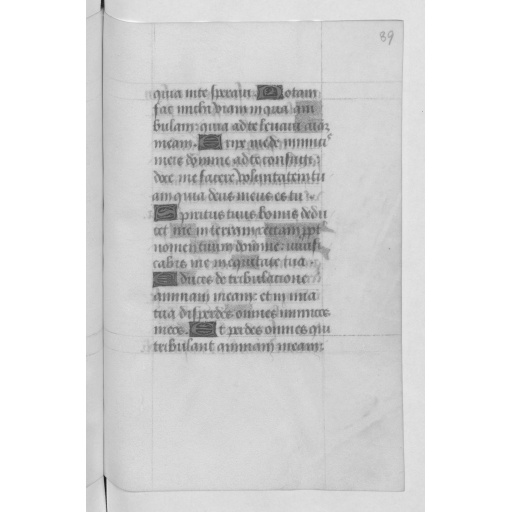 89
quia in te speravi. Notam
fac michi viam in qua am
bulam: quia ad te levavi
meam. Eripe me de inimicis
meis domine ad te confugi:
doce me facere voluntatem tu
am quia deus meus es tu
Spiritus tuus bonus dedu
cet me in terram rectam ppt
nomen tuum domine: vivifi
cabis me in equitate tua
Educes de tribulatione
animam meam: et in mia
tua disperdes omnes inimicos
meos. Et perdes omnes qui
tribulant animam meam: